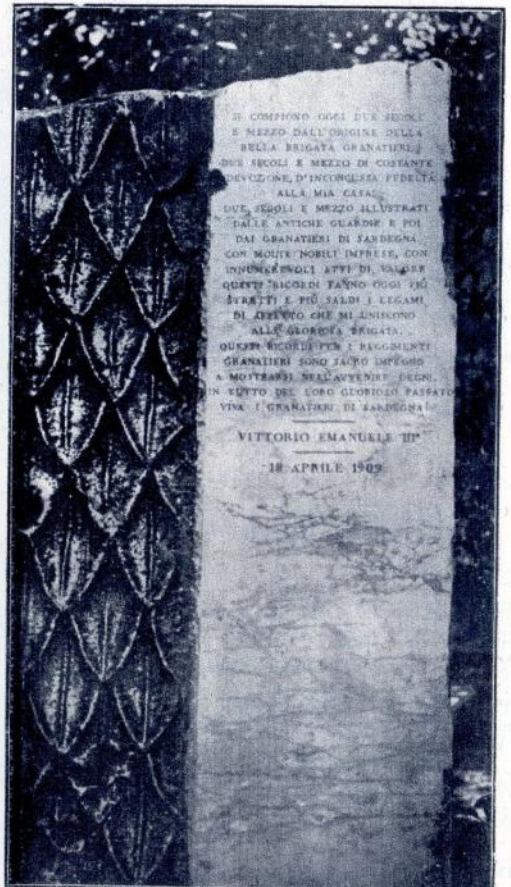 SI COMPIONO OGGI DUE SECOLI
E MEZZO DALL'ORIGINE DELLA
BELLA BRIGATA GRANATIERI;
DUE SECOLI E MEZZO DI COSTANTE
DEVOZIONE, D'INCONCUSSA FEDELTÀ
ALLA MIA CASA;
DUE SECOLI E MEZZO ILLUSTRATI
DALLE ANTICHE GUARDIE E POI
DAI GRANATIERI DI SARDEGNA
CON MOLTE NOBILI IMPRESE, CON
INNUMEREVOLI ATTI DI VALORE
QUESTI RICORDI FANNO OGGI PIÙ
STRETTI E PIÙ SALDI I LEGAMI
DI AFFETTO CHE MI UNISCONO
ALLA GLORIOSA BRIGATA.
QUESTI RICORDI PER I REGGIMENTI
GRANATIERI SONO SACRO IMPEGNO
A MOSTRARSI NELL'AVVENIRE DEGNI,
IN TUTTO DEL LORO GLORIOSO PASSATO
VIVA I GRANATIERI DI SARDEGNA!
VITTORIO EMANUELE III°
18 APRILE 1909